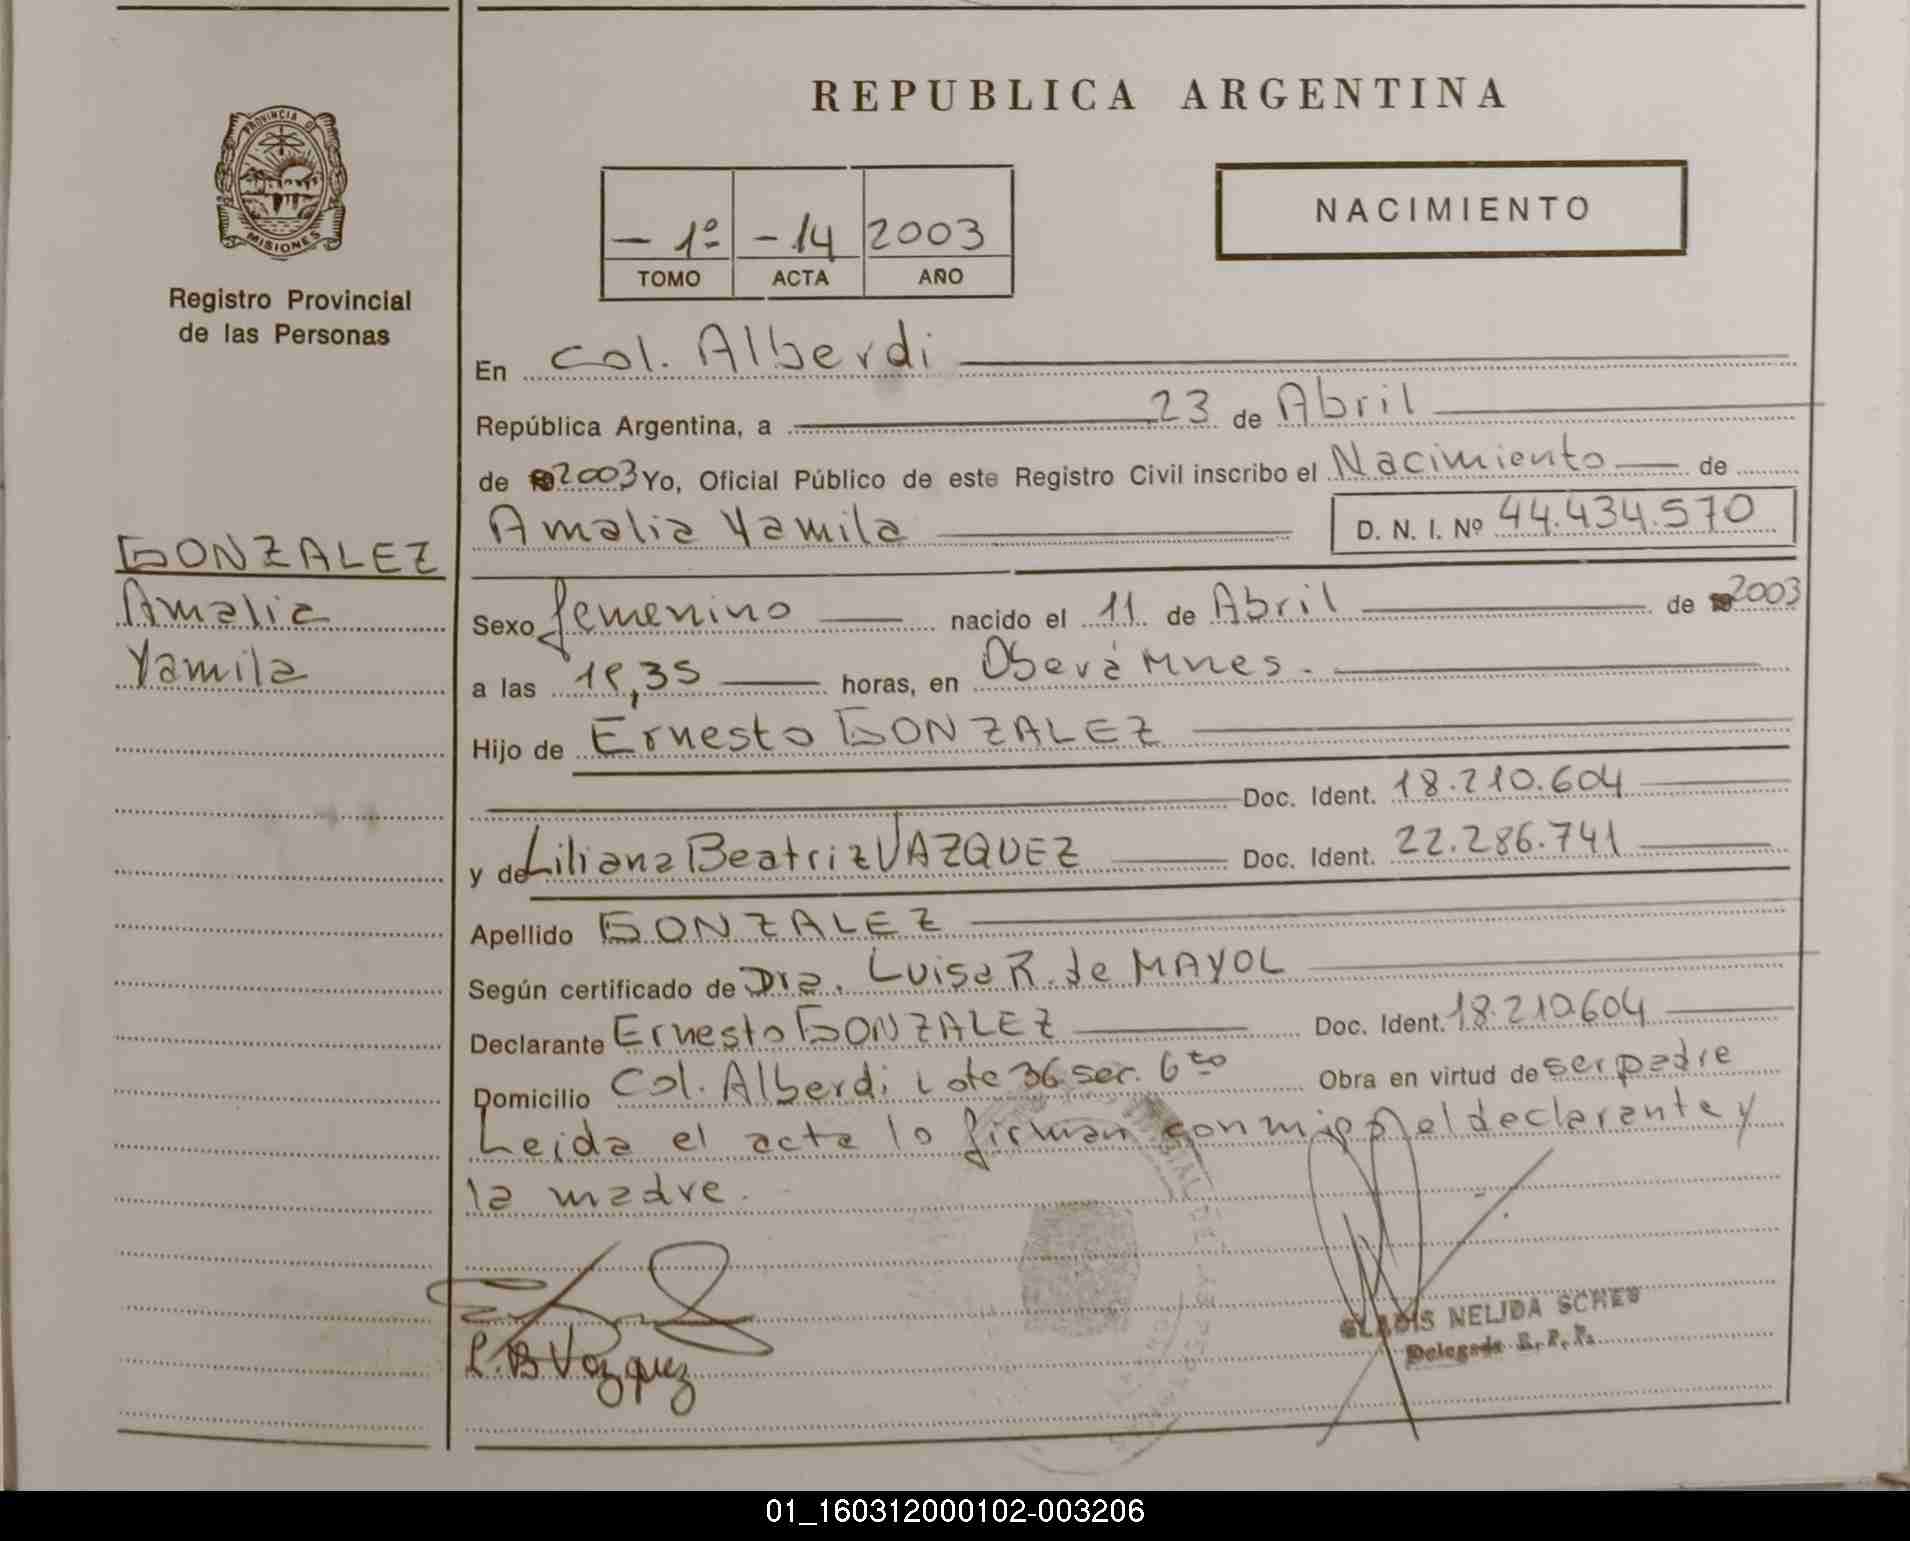 REPUBLICA ARGENTINA
PROVINCIA DE
MISIONES
Registro Provincial
de las Personas
– 1º – 14 2003
TOMO ACTA AÑO
NACIMIENTO
En Col. Alberdi
República Argentina, a 23 de Abril
de 2003 Yo, Oficial Público de este Registro Civil inscribo el Nacimiento de
Amalia Yamila D. N. I. Nº 44.434.570
GONZALEZ
Amalia
Yamila
Sexo femenino nacido el 11 de Abril de 2003
a las horas, en Oberá Mnes.
Hijo de Ernesto GONZALEZ
Doc. Ident. 18.210.604
y de Liliana Beatriz VAZQUEZ Doc. Ident. 22.286.741
Apellido GONZALEZ
Según certificado de Dra. Luisa R. de MAYOL
Declarante Ernesto GONZALEZ Doc. Ident. 18.210.604
Domicilio Col. Alberdi Lote 36 sec. 6ta Obra en virtud de ser padre
Leida el acta lo firman conmigo el declarante y
la madre.
L. B Vazquez
GLADIS NELIDA
Delegada R. P. P.
01_160312000102-003206